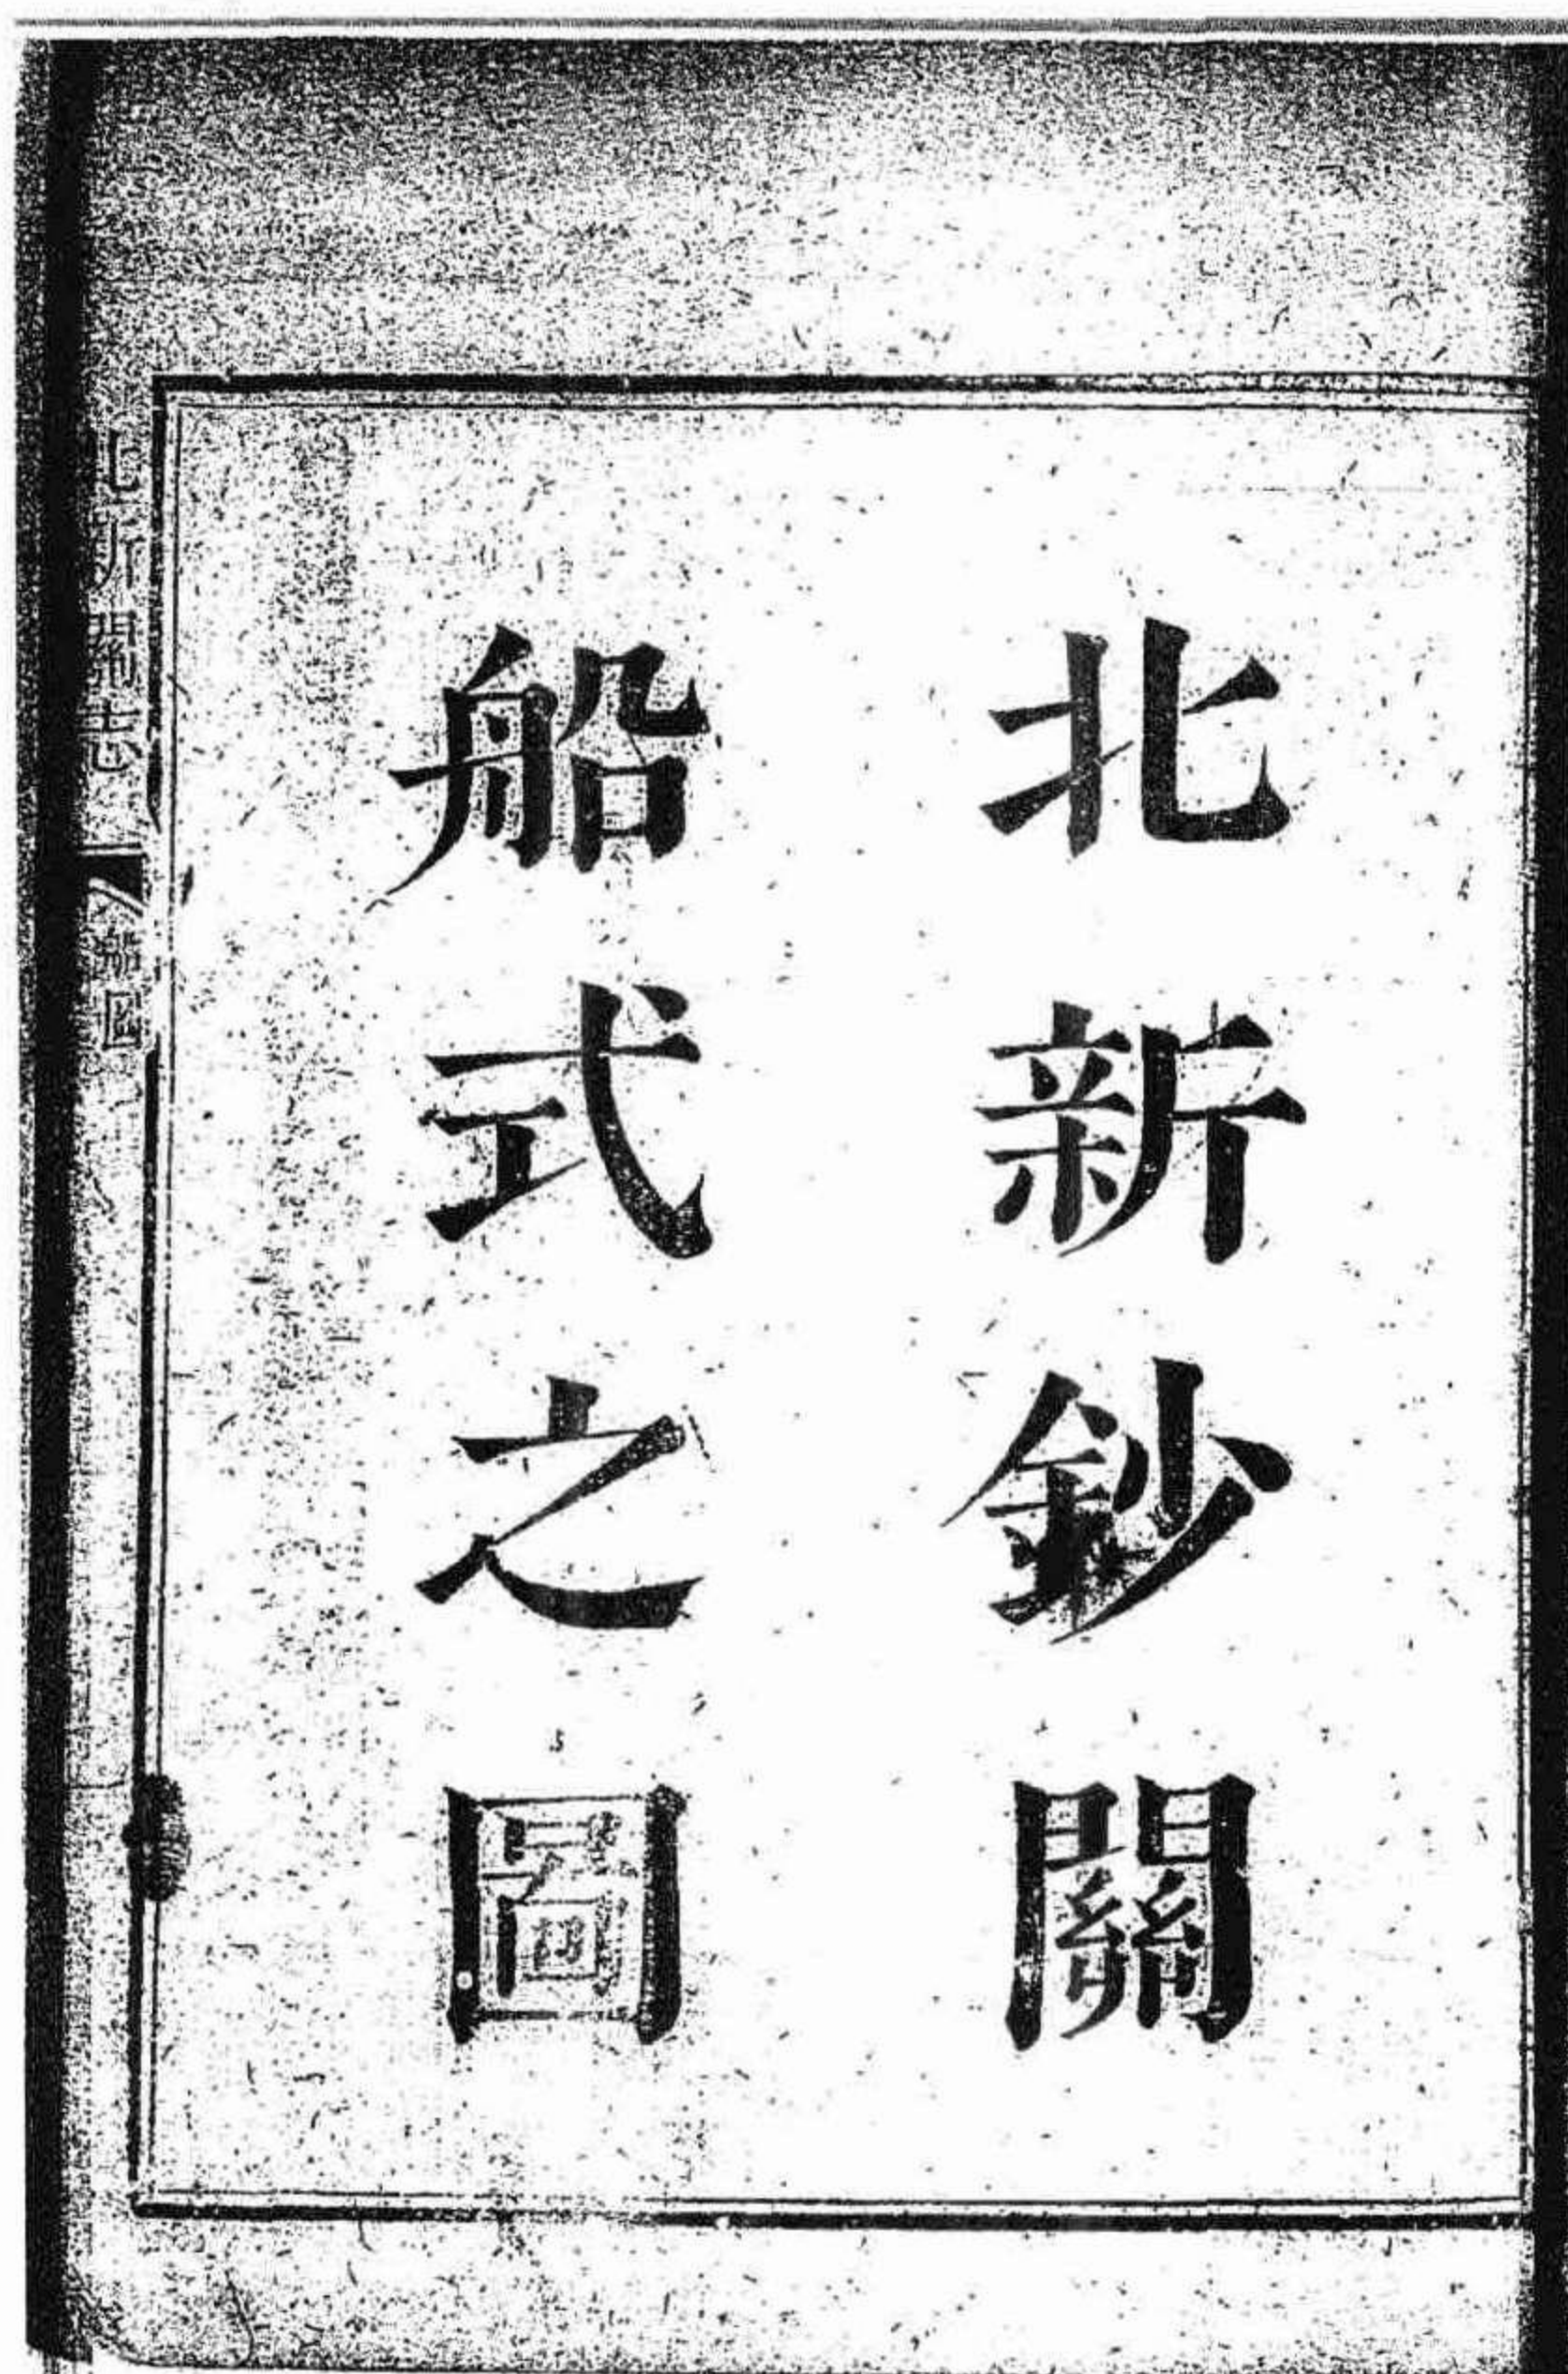 北新鈔關
船式之圖
北新關志
船圖